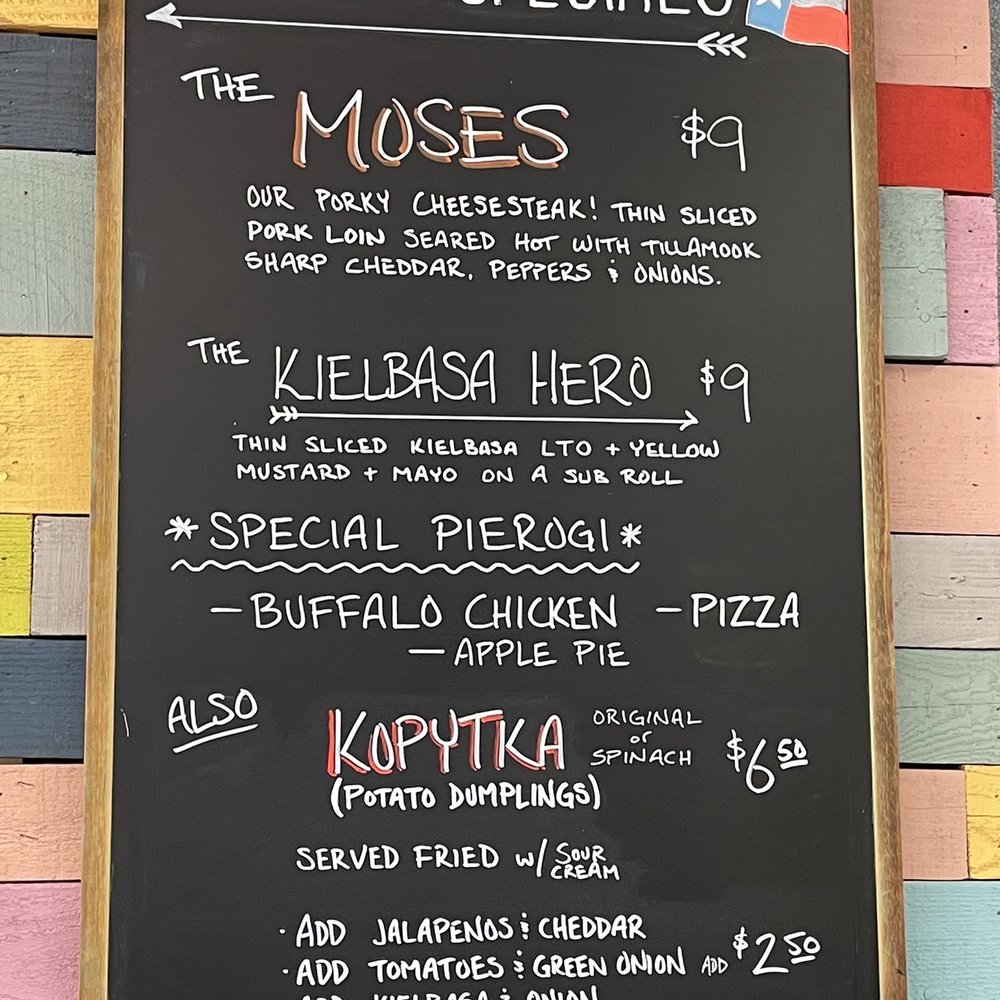 SPECIALS
THE MOSES $9
OUR PORKY CHEESESTEAK! THIN SLICED
PORK LOIN SEARED HOT WITH TILLAMOOK
SHARP CHEDDAR, PEPPERS & ONIONS.
THE KIELBASA HERO $9
THIN SLICED KIELBASA LTO + YELLOW
MUSTARD + MAYO ON A SUB ROLL
*SPECIAL PIEROGI*
- BUFFALO CHICKEN - PIZZA
- APPLE PIE
ALSO KOPYTKA ORIGINAL or SPINACH $6.50
(POTATO DUMPLINGS)
SERVED FRIED w/ SOUR CREAM
· ADD JALAPENOS & CHEDDAR
· ADD TOMATOES & GREEN ONION ADD $2.50
ADD KIELBASA & ONION